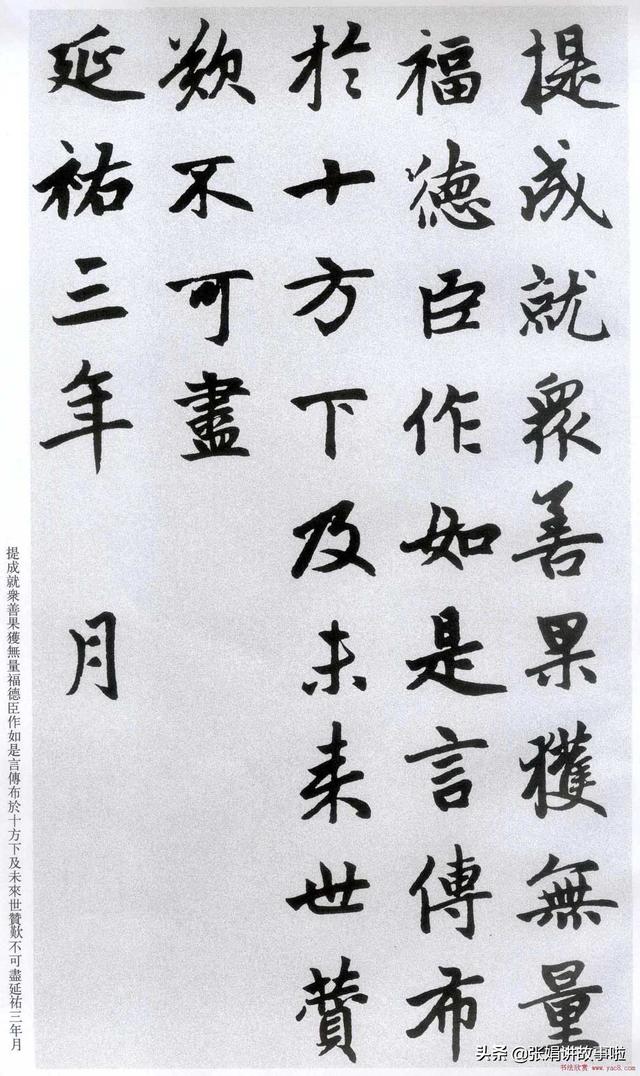 提成就衆善果獲無量
福德臣作如是言傳布
於十方下及未来世賛
歎不可盡
延祐三年 月
提成就衆善果獲無量福德臣作如是言傳布於十方下及未來世贊歎不可盡延祐三年月
头条 @张娟讲故事啦
书法欣赏 www.yac8.com